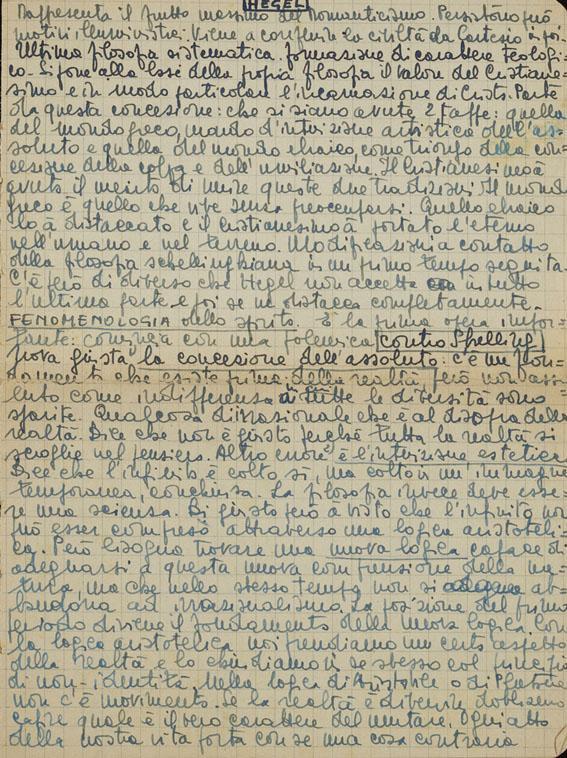 HEGEL
Rappresenta il frutto massimo del Romanticismo. Persistono però
motivi illuministici. Viene a confluire la civiltà da Cartesio in poi.
Ultimo filosofo sistematico. Formazione di carattere teologi-
co. Si pone alla base della propria filosofia il valore del Cristiane-
simo e in modo particolare l'incarnazione di Cristo. Parte
da questa concezione: che si siano avute 2 tappe: quella
del mondo greco, mondo d'intuizione artistica dell'as-
soluto e quella del mondo ebraico, come trionfo della con-
cezione della colpa e dell'umiliazione. Il Cristianesimo à
avuto il merito di unire queste due tradizioni. Il mondo
greco è quello che vive senza preoccuparsi. Quello ebraico
lo à distaccato e il cristianesimo à portato l'eterno
nell'umano e nel terreno. Modificazioni a contatto
della filosofia schellinghiana in un primo tempo seguita.
C'è però di diverso che Hegel non accetta in tutto
l'ultima parte e poi se ne distacca completamente.
FENOMENOLOGIA dello spirito. È la prima opera impor-
tante: comincia con una polemica contro Schelling
trova giusta la concezione dell'assoluto: c'è un fon-
damento che esiste prima della realtà, però non asso-
luto come indifferenza in tutte le diversità sono
sparite. Qualcosa d'irrazionale che è al disopra della
realtà. Dice che non è giusto perché tutta la realtà si
scioglie nel pensiero. Altro errore è l'intuizione estetica.
Dice che l'infinito è colto sì, ma colto in un'immagine
temporanea, conchiusa. La filosofia invece deve esse-
re una scienza. Di giusto però à visto che l'infinito non
può esser compreso attraverso una logica aristoteli-
ca. Però bisogna trovare una nuova logica capace di
adeguarsi a questa nuova comprensione della na-
tura, ma che nello stesso tempo non si ab-
bandona ad irrazionalismo. La posizione del primo
periodo diviene il fondamento della nuova logica. Con
la logica aristotelica noi prendiamo un certo aspetto
della realtà e lo chiudiamo in se stesso col principio
di non-identità. Nella logica di Aristotele o di Platone
non c'è movimento. Se la realtà è divenire dobbiamo
capire quale è il vero carattere del mutare. Ogni atto
della nostra vita porta con se una cosa contraria